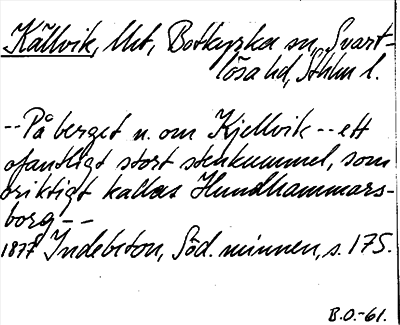 Källvik, Utt, Botkyrka sn, Svart-
lösa hd, Sthlm l.
--På berget n. om Kjellvik -- ett
ofantligt stort stenkummel, som
oriktigt kallas Hundhammars-
borg --
1877 Indebetou, Söd. minnen, s. 175.
B.O.-61.